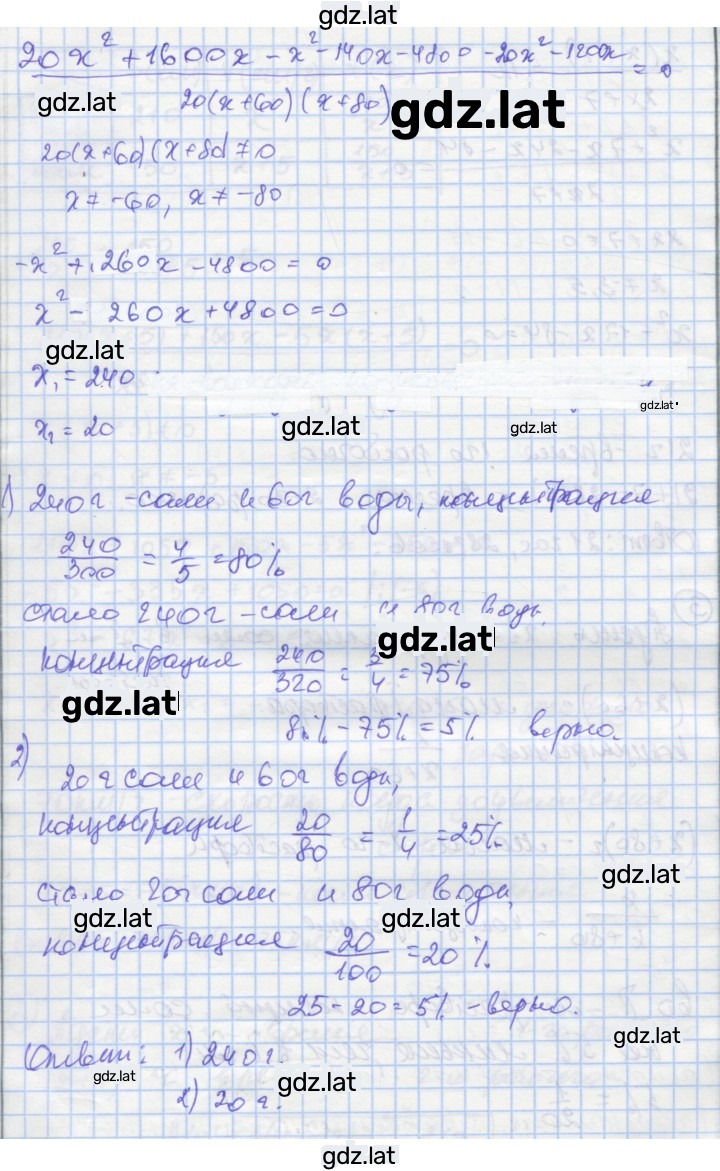 gdz.lat
20x² + 1600x - x² - 140x - 4800 - 20x² - 1200x / 20(x+60)(x+80) = 0
gdz.lat
gdz.lat
20(x+60)(x+80) ≠ 0
x ≠ -60, x ≠ -80
-x² + 260x - 4800 = 0
x² - 260x + 4800 = 0
gdz.lat
x₁ = 240
gdz.lat
x₂ = 20
gdz.lat
gdz.lat
1) 240г - соли и 60г воды, концентрация
240/300 = 4/5 = 80%
стало 240г - соли и 80г воды,
gdz.lat
концентрация 240/320 = 3/4 = 75%
gdz.lat
80% - 75% = 5% верно.
2)
20г соли и 60г воды,
концентрация 20/80 = 1/4 = 25%
gdz.lat
стало 20г соли и 80г воды,
gdz.lat
gdz.lat
концентрация 20/100 = 20%
25 - 20 = 5% - верно.
gdz.lat
Ответ: 1) 240г.
gdz.lat
gdz.lat
2) 20г.
gdz.lat